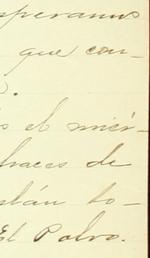 speramos
que con-
s.
s el miér-
traces de
stán to-
El Polvo.